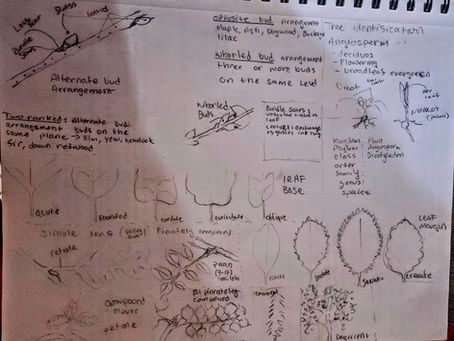 Leaf scar
Buds
Lenticel
Bundle scars
Alternate bud
Arrangement
opposite bud arrangement
Maple, Ash, Dogwood, Buckeye
lilac
Whorled bud arrangement
three or more buds
on the same level
Tree identification
Angiosperm
- deciduos
- Flowering
- broadleaf evergreen
Dicot
Monocot
Two ranked: alternate bud
arrangement buds on the
same plane → Elm, yew, hemlock
fir, dawn redwood
Whorled
Buds
Bundle scars:
vascular tissue of
leaf
Lenticel: exchange
of gasses
Kingdom: Plant
Phylum: Angiosperm
class: Dicotyledon
order
family
genus
species
LEAF
BASE
acute
Rounded
cordate
auriculate
oblique
Simple leaf
Pinnately compound
petiole
pecan
(9-17)
leaflets
LEAF
Margin
entire
serrate
crenate
compound
clover
petiole
Bi pinnately
compound